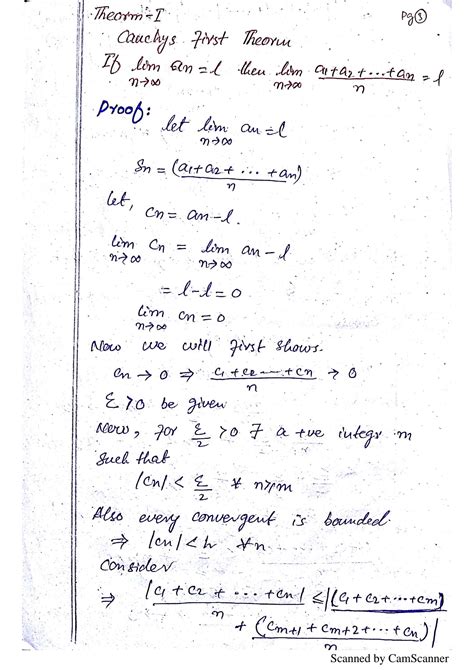 Theorm-I
Pg ③
Cauchys First Theorm
If lim n→∞ an = l then lim n→∞ (a1+a2+...+an)/n = l
Proof:
let lim n→∞ an = l
Sn = (a1+a2+ ... +an)/n
let,
Cn = an - l.
lim n→∞ Cn = lim n→∞ an - l
= l - l = 0
lim n→∞ Cn = 0
Now we will first shows.
Cn → 0 ⇒ (C1+C2 --- + Cn)/n → 0
Ɛ > 0 be given
Now, for Ɛ/2 > 0 ∃ a +ve integr m
Such that
|Cn| < Ɛ/2 ∀ n≥m
Also every convergent is bounded.
⇒ |Cn| < h ∀n
Consider
⇒ |C1 + C2 + ... + Cn|/n ≤ |(C1 + C2 + ... + Cm)
+ (Cm+1 + Cm+2 + ... + Cn)|/n
Scanned by CamScanner